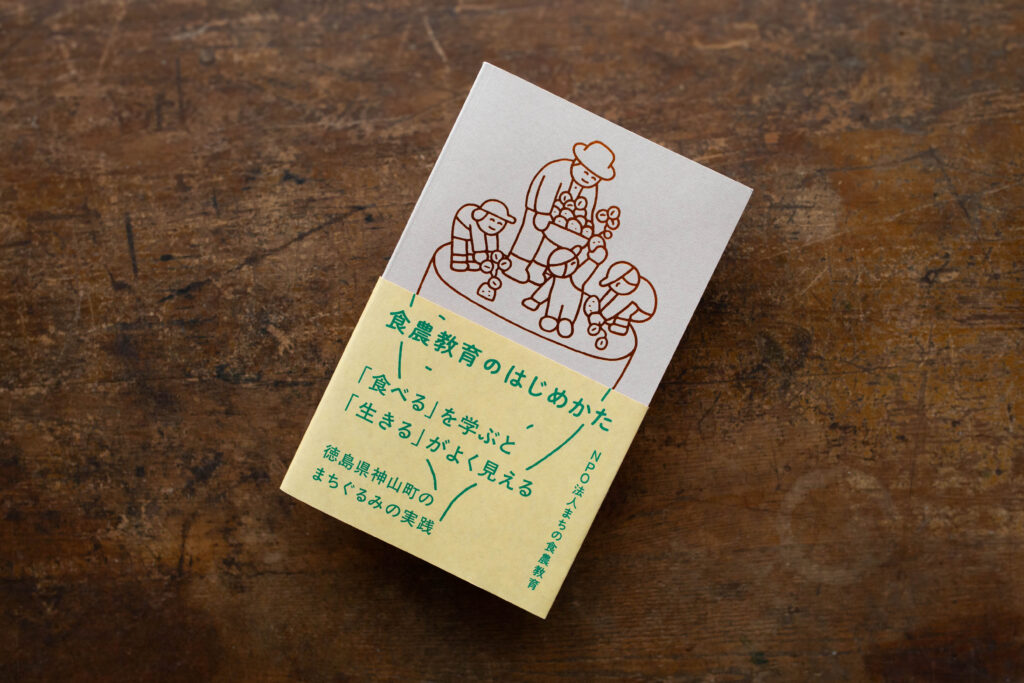 食農教育のはじめかた
「食べる」を学ぶと
「生きる」がよく見える
徳島県神山町の
まちぐるみの実践
NPO法人まちの食農教育